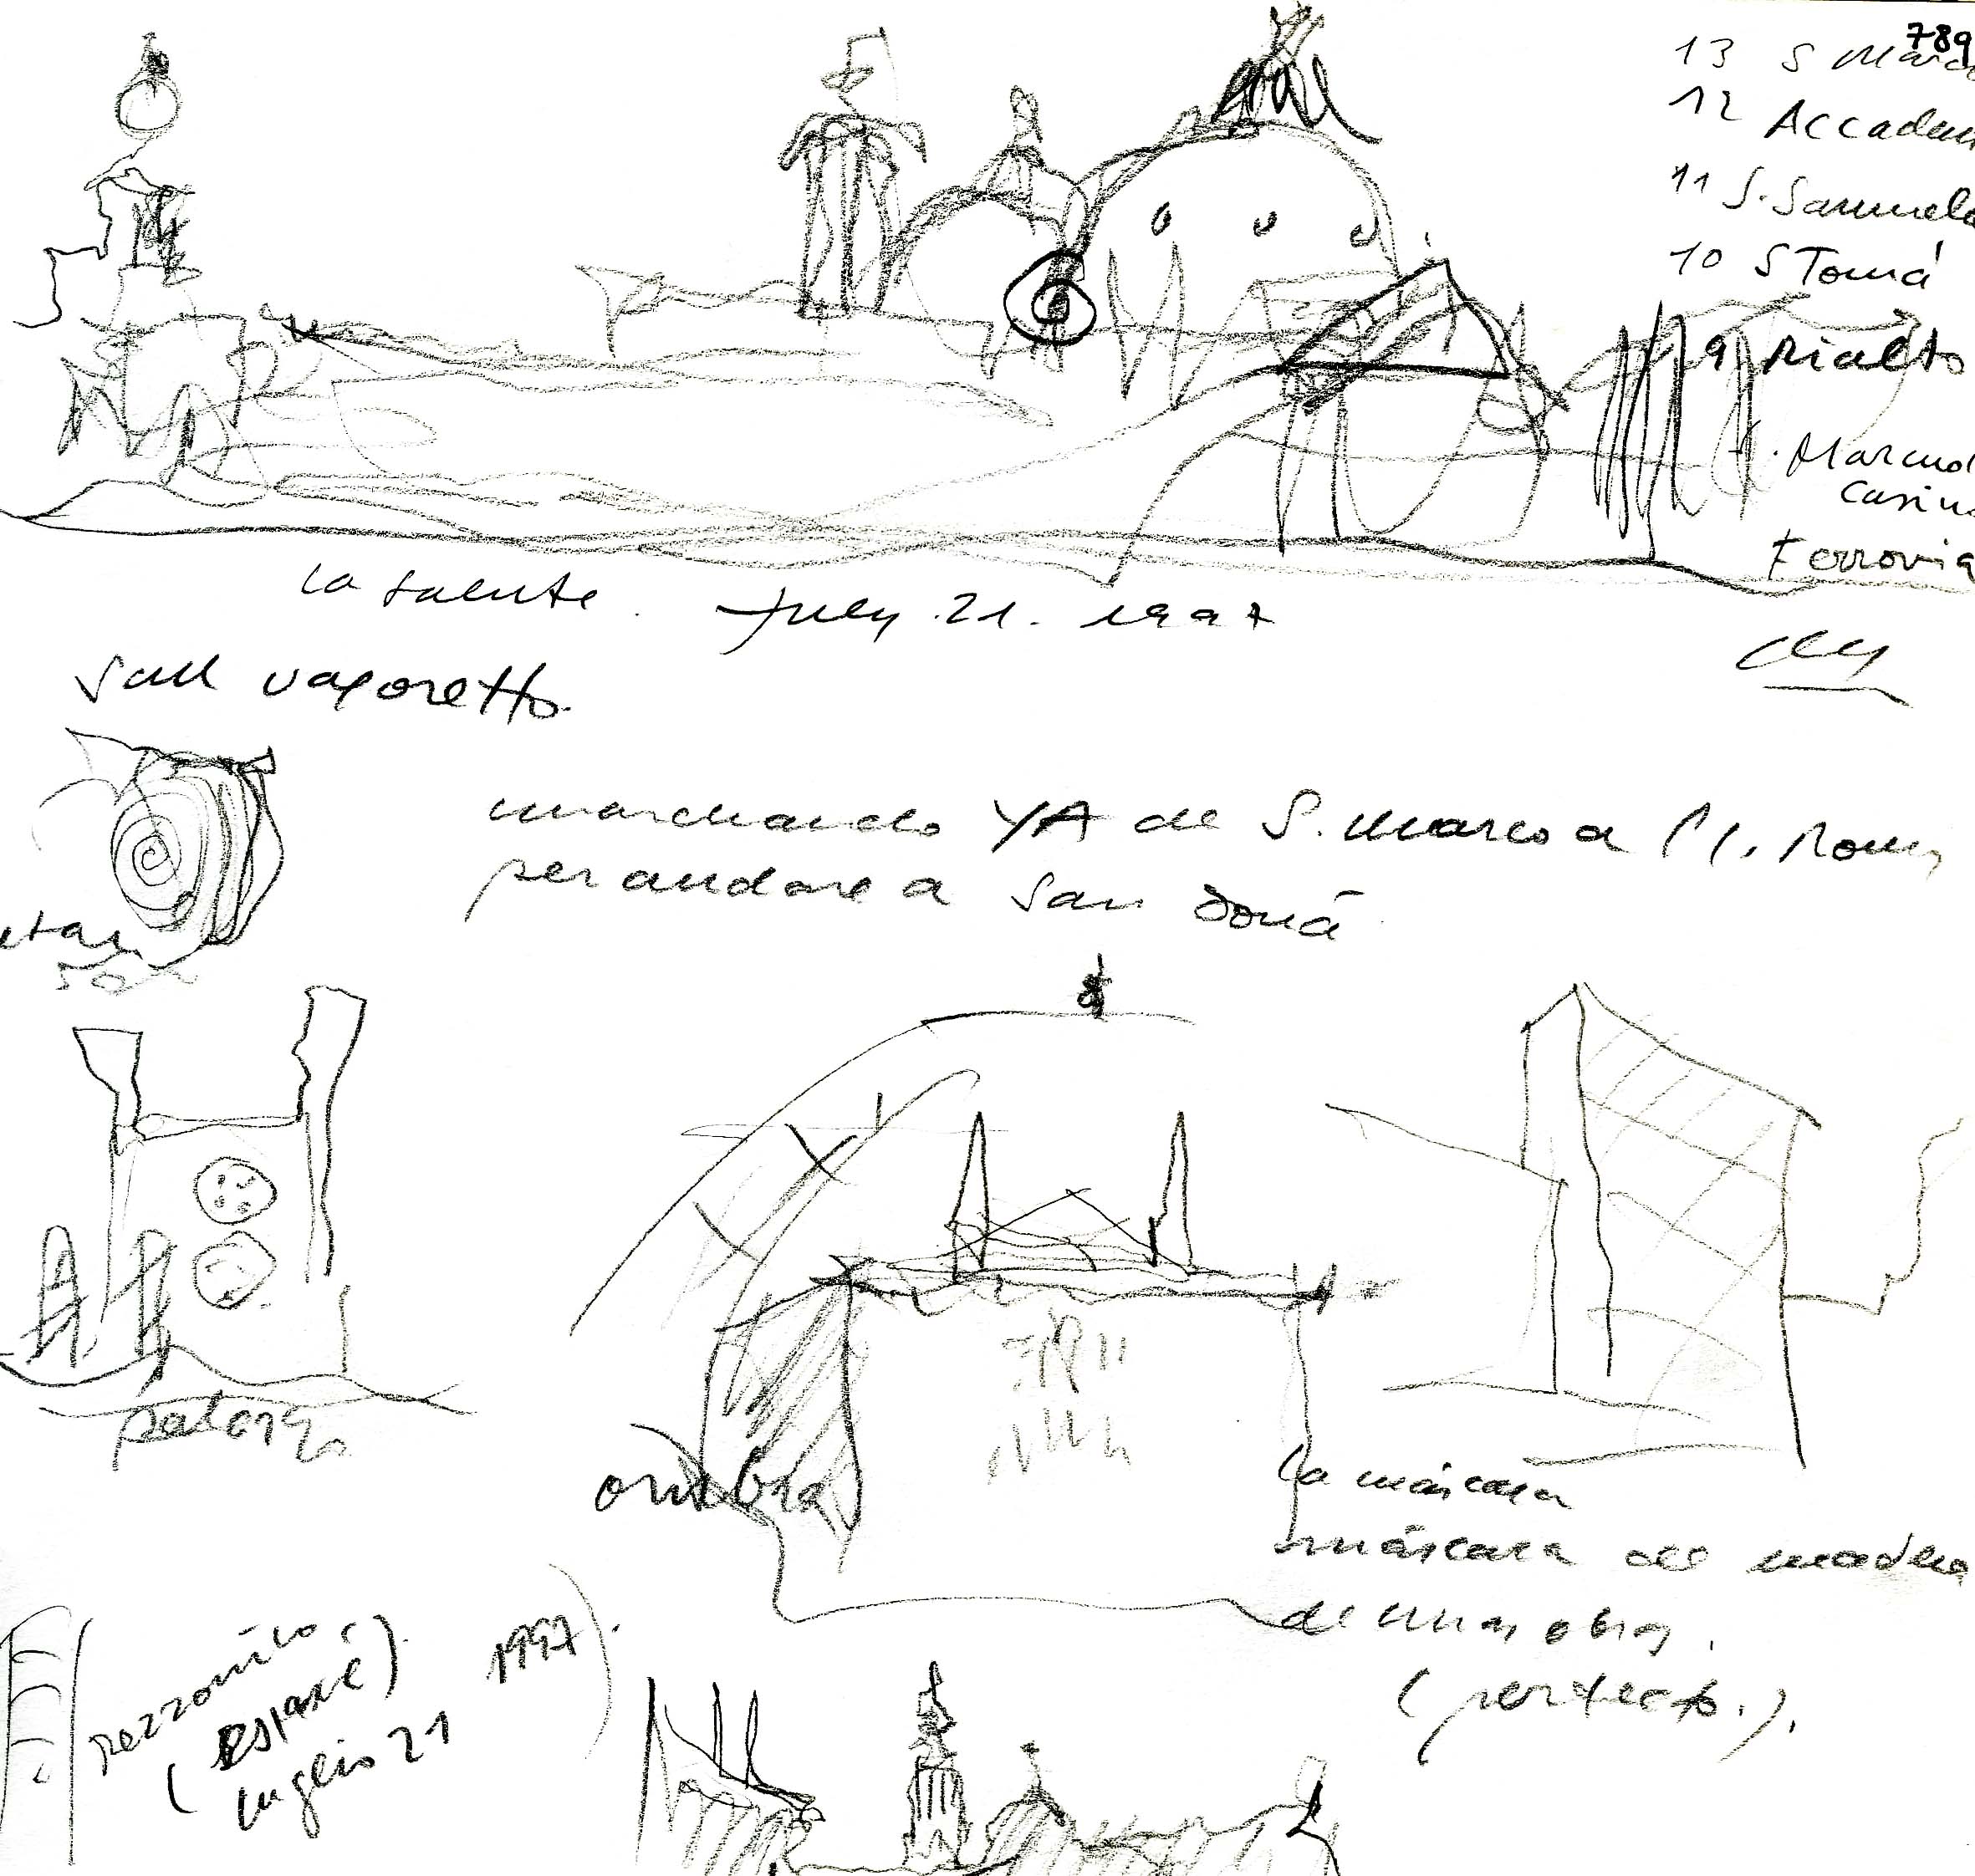 789
13 S Marco
12 Accadem
11 S. Samuele
10 S Tomá
9 Rialto
Marcuol
Casin
Ferrovia
la salute. July. 21. 1997
sull vaporetto.
marchando YA de S. Marco a Pl. Roma
per andare a San Doná
palazzo
ombra
la máscara
máscara de
de una obra.
(perfecto.).
Rezzonico,
(ESPAXÉ)
luglio 21 1997).